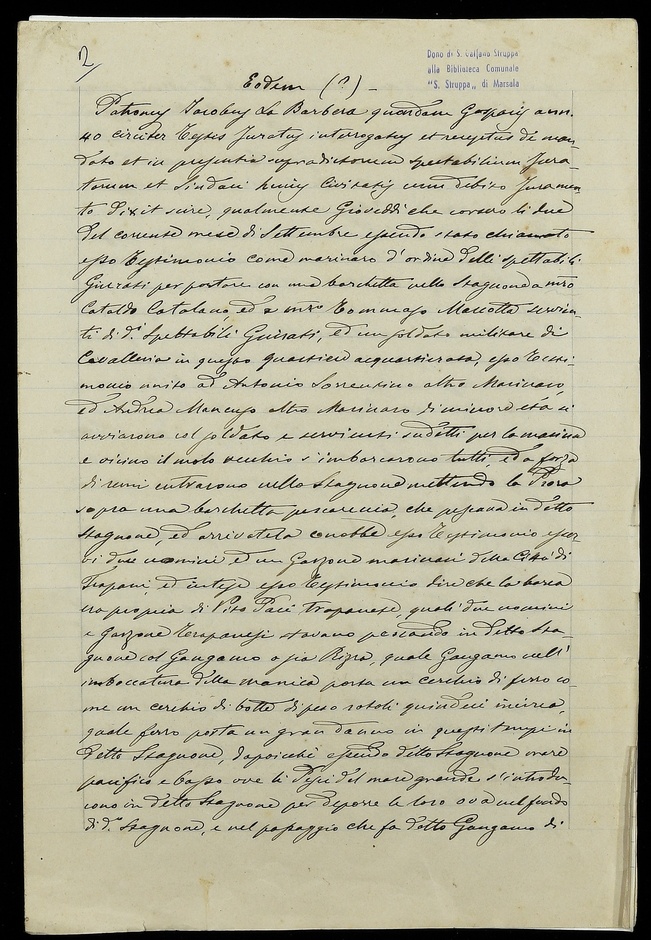 2
Dono di S. Gaetano Struppa
alla Biblioteca Comunale
"S. Struppa„ di Marsala
Eodem (?) –
Patronus Jacobus La Barbera quondam Gasparis ann.
40 circiter Testis Juratus interrogatus et receptus de man-
dato et in presentia supradictorum spectabilium Jura-
torum et Sindaci hujus Civitatis cum debito Juramen-
to dixit scire, qualmente Giovedì che corsero li due
del corrente mese di Settembre essendo stato chiamato
esso Testimonio come marinaro d'ordine delli spettabili
Giurati per portare con una barchetta nello Stagnone a mro
Cataldo Catalano, ed a mro Tommaso Mannotta servien-
ti di d.i Spettabili Giurati, ed un soldato militare di
Cavalleria in questo quartiere acquartierata, esso Testi-
monio unito ad Antonio Sorrentino altro Marinaro,
ed Andrea Mancuso altro Marinaro di minor età si
avviarono col soldato e servienti sudetti per la marina
e vicino il molo vecchio s'imbarcarono tutti, ed a forza
di remi entrarono nello Stagnone mettendo la Prora
sopra una barchetta pescareccia, che pescava in detto
Stagnone, ed arrivatela conobbe esso Testimonio esser-
vi due uomini ed un Garzone marinari della Città di
Trapani, ed intese esso Testimonio dire che la barca
era propria di Vito Pace trapanese, quali due uomini
e Garzone Trapanesi stavano pescando in detto Sta-
gnone col Gangamo o sia Rizza, quale Gangamo nell'
imboccatura della manica porta un cerchio di ferro co-
me un cerchio di botte di peso rotoli quindeci incirca,
quale ferro porta un gran danno in questi tempi in
detto Stagnone, dapoicchè essendo detto Stagnone mare
pacifico e basso ove li Pesci del mare grande s'introdu-
cono in detto Stagnone per deporre le loro ova nel fondo
di d.o Stagnone, e nel passaggio che fa detto Gangamo di